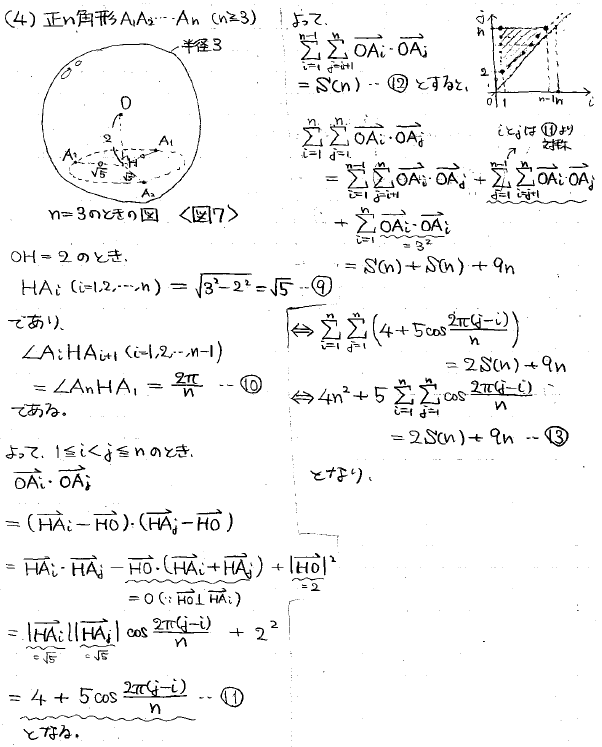 (4) 正n角形 A₁A₂…An (n≧3)
半径3
O
2
H
A₁
√5
√5
A₂
n=3のときの図 〈図7〉
OH = 2 のとき、
HAi (i=1,2,…,n) = √(3²-2²) = √5 … ⑨
であり、
∠AiHAi+1 (i=1,2,…,n-1)
= ∠AnHA₁ = 2π/n … ⑩
である。
よって、1≦i<j≦n のとき、
→OAi・→OAj
= (→HAi - →HO)・(→HAj - →HO)
= →HAi・→HAj - →HO・(→HAi + →HAj) + |→HO|²
= 0 (∵ →HO⊥→HAi)
= 2
= |→HAi||→HAj| cos 2π(j-i)/n + 2²
= √5 = √5
= 4 + 5cos 2π(j-i)/n … ⑪
となる。
よって、
Σ[i=1, n-1] Σ[j=i+1, n] →OAi・→OAj
= S(n) … ⑫ とすると、
j
n
2
0 1 n-1 n i
Σ[i=1, n] Σ[j=1, n] →OAi・→OAj
iとjは⑪より
対称
= Σ[i=1, n-1] Σ[j=i+1, n] →OAi・→OAj + Σ[j=1, n-1] Σ[i=j+1, n] →OAi・→OAj
+ Σ[i=1, n] →OAi・→OAi
= 3²
= S(n) + S(n) + 9n
⇔ Σ[i=1, n] Σ[j=1, n] (4 + 5cos 2π(j-i)/n)
= 2S(n) + 9n
⇔ 4n² + 5 Σ[i=1, n] Σ[j=1, n] cos 2π(j-i)/n
= 2S(n) + 9n … ⑬
となり、